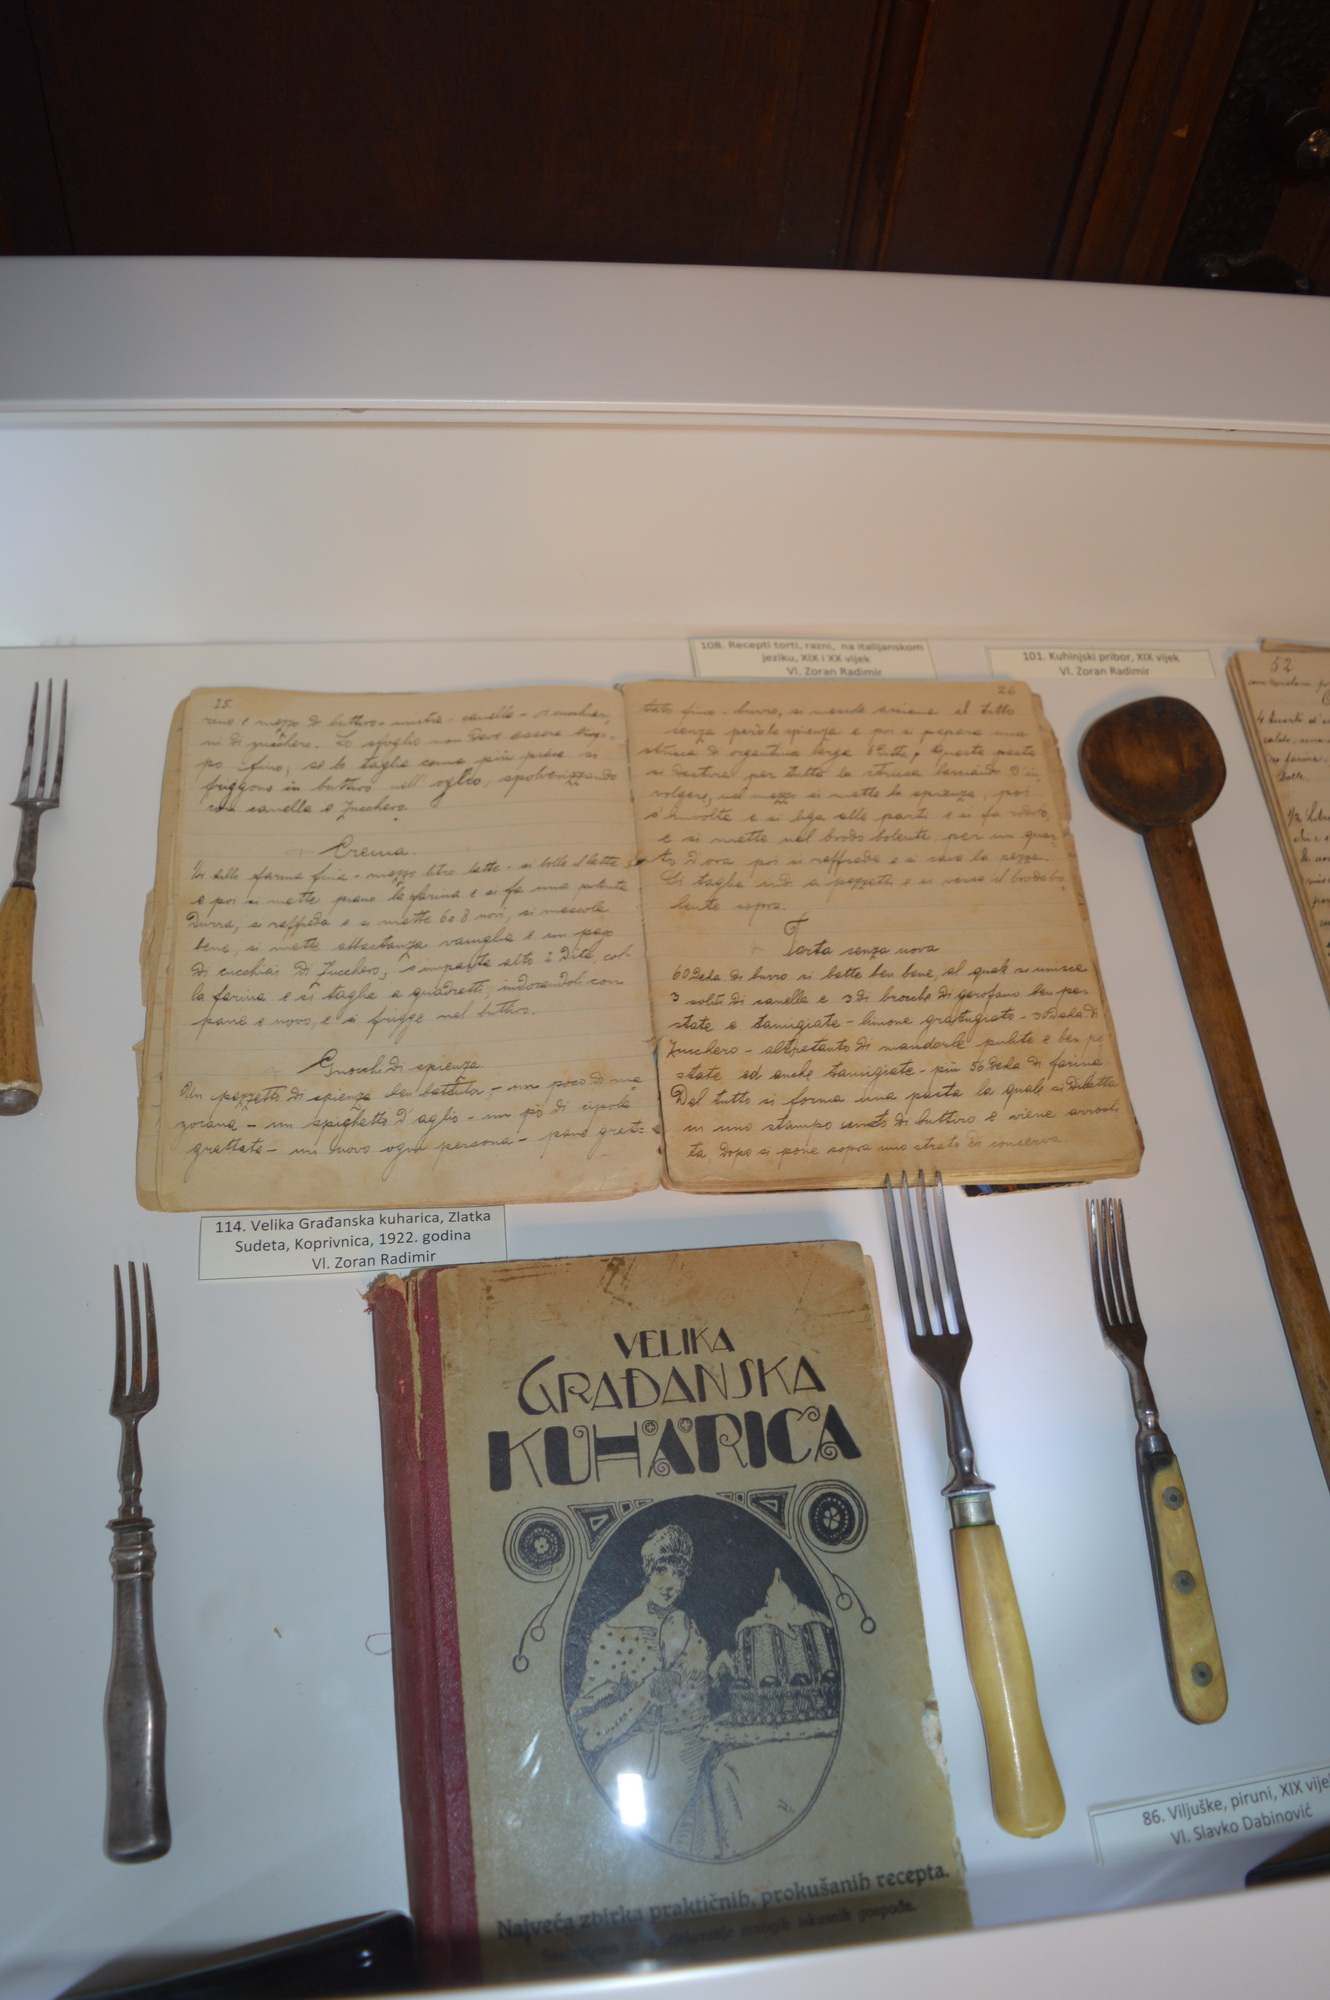 108. Recepti torti, razni, na italijanskom
jeziku, XIX i XX vijek
Vl. Zoran Radimir
101. Kuhinjski pribor, XIX vijek
Vl. Zoran Radimir
25
ni di zucchero. Lo sfoglio non deve essere trop-
po fino, se lo taglia come più piace si
friggono in buttiro nell' oglio, spolverizzando
con canella e Zucchero.
Crema.
farina fina - mezzo litro latte - si bolle il latte
e poi si mette piano la farina e si fa una polenta
Durra, si raffreda e si mette 6 o 8 uovi, si mescola
bene, si mette abbastanza vaniglia e un pajo
di cucchiai di Zucchero, s'impasta alto 2 Dita, col-
la farina e si taglia a quadretti, indorandoli con
pane e uovo, e si frigge nel buttiro.
Gnocchi di spienza
Un pezzetto di spienza ben battuta, - un poco di ma
zorana - un spighetto d'aglio - un pò di cipola
grattata - un uovo ogni persona - pane grat=
26
tato fino - burro, si mescola assieme il tutto
senza però la spienza e poi si prepara una
striscia di organtina larga 6 Dita, questa pasta
si destira per tutta la striscia lasciando d'in
volgere, nel mezzo si mette la spienza, poi
s'involta e si liga alle parti e si fa
e si mette nel brodo bolente per un quar-
to d'ora poi si raffreda e si cava la
Si taglia indi a pezzetti e si versa il brodo bo-
lente sopra.
Torta senza uova
60 Deka di burro si batte ben bene, al quale si unisce
3 soldi di canella e 3 di brocche di garofano ben pe-
state e tamigiate - limone grattugiato - 30 Deka di
Zucchero - altretanto di mandorle pulite e ben pe
state ed anche tamigiate - più 56 Deka di farina
Del tutto si forma una pasta la quale si Dilatta
in uno stampo unto di buttiro e viene arrosti
ta, dopo si pone sopra uno strato di conserva
52
114. Velika Građanska kuharica, Zlatka
Sudeta, Koprivnica, 1922. godina
Vl. Zoran Radimir
VELIKA
GRAĐANSKA
KUHARICA
Najveća zbirka praktičnih, prokušanih recepta.
86. Viljuške, piruni, XIX vijek
Vl. Slavko Dabinović